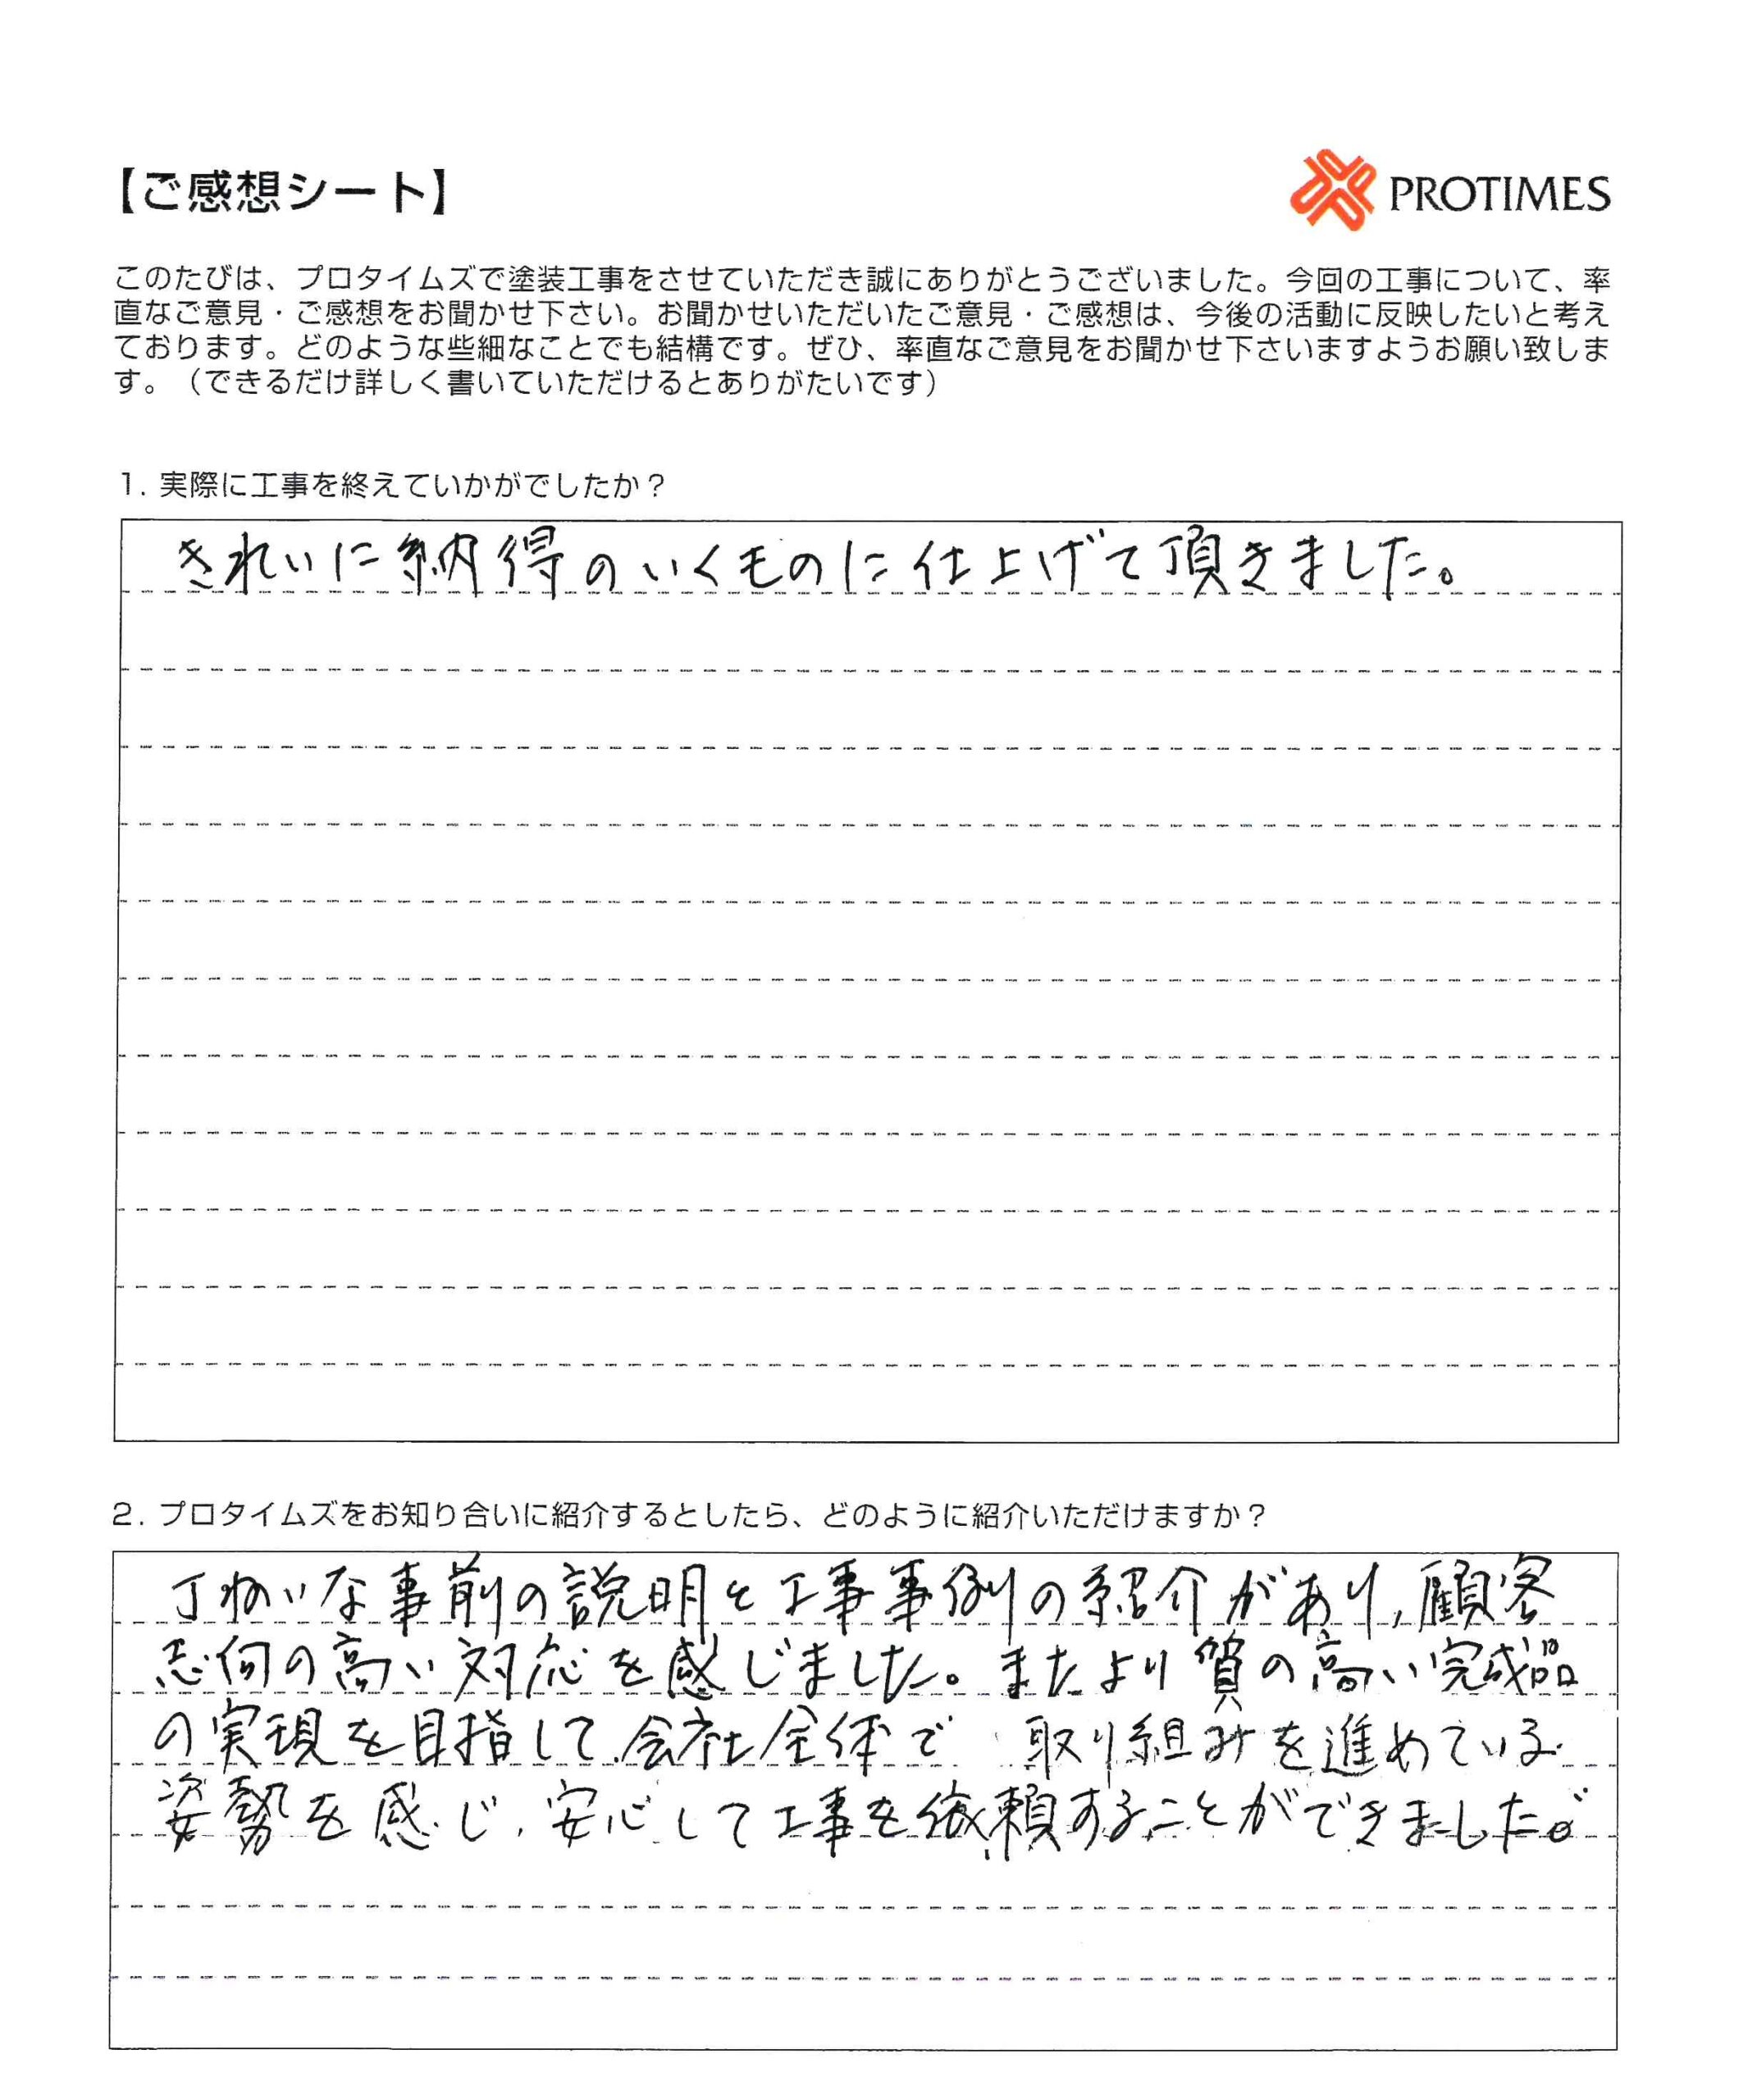 【ご感想シート】
PROTIMES
このたびは、プロタイムズで塗装工事をさせていただき誠にありがとうございました。今回の工事について、率
直なご意見・ご感想をお聞かせ下さい。お聞かせいただいたご意見・ご感想は、今後の活動に反映したいと考え
ております。どのような些細なことでも結構です。ぜひ、率直なご意見をお聞かせ下さいますようお願い致しま
す。（できるだけ詳しく書いていただけるとありがたいです）
1. 実際に工事を終えていかがでしたか？
きれいに納得のいくものに仕上げて頂きました。
2. プロタイムズをお知り合いに紹介するとしたら、どのように紹介いただけますか？
丁ねいな事前の説明と工事事例の紹介があり、顧客
志向の高い対応を感じました。またより質の高い完成品
の実現を目指して会社全体で取り組みを進めている
姿勢を感じ、安心して工事を依頼することができました。